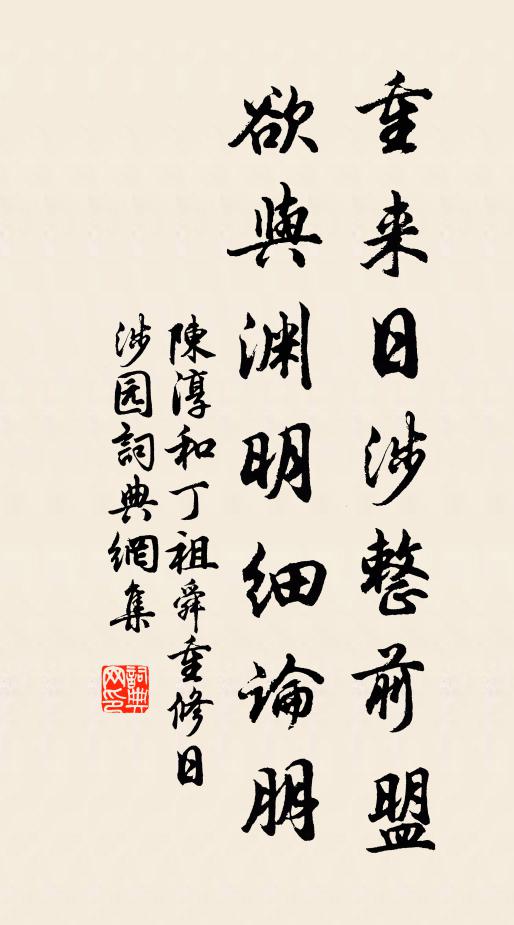 重来日涉整前盟
欲與渊明细论朋
陳淳和丁祖舜重修日
涉园詞典網集
詞典
网印